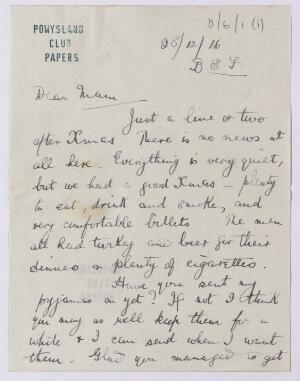 D/6/1 (i)
POWYSLAND
CLUB
PAPERS
28/12/16
B.E.F.
Dear Mam
Just a line or two
after Xmas. There is no news at
all here. Everything is very quiet,
but we had a good Xmas - plenty
to eat, drink and smoke, and
very comfortable billets. The men
all had turkey and beer for their
dinner & plenty of cigarettes.
Have you sent my
pyjamas on yet? If not I think
you may as well keep them for a
while & I can send when I want
them. Glad you managed to get